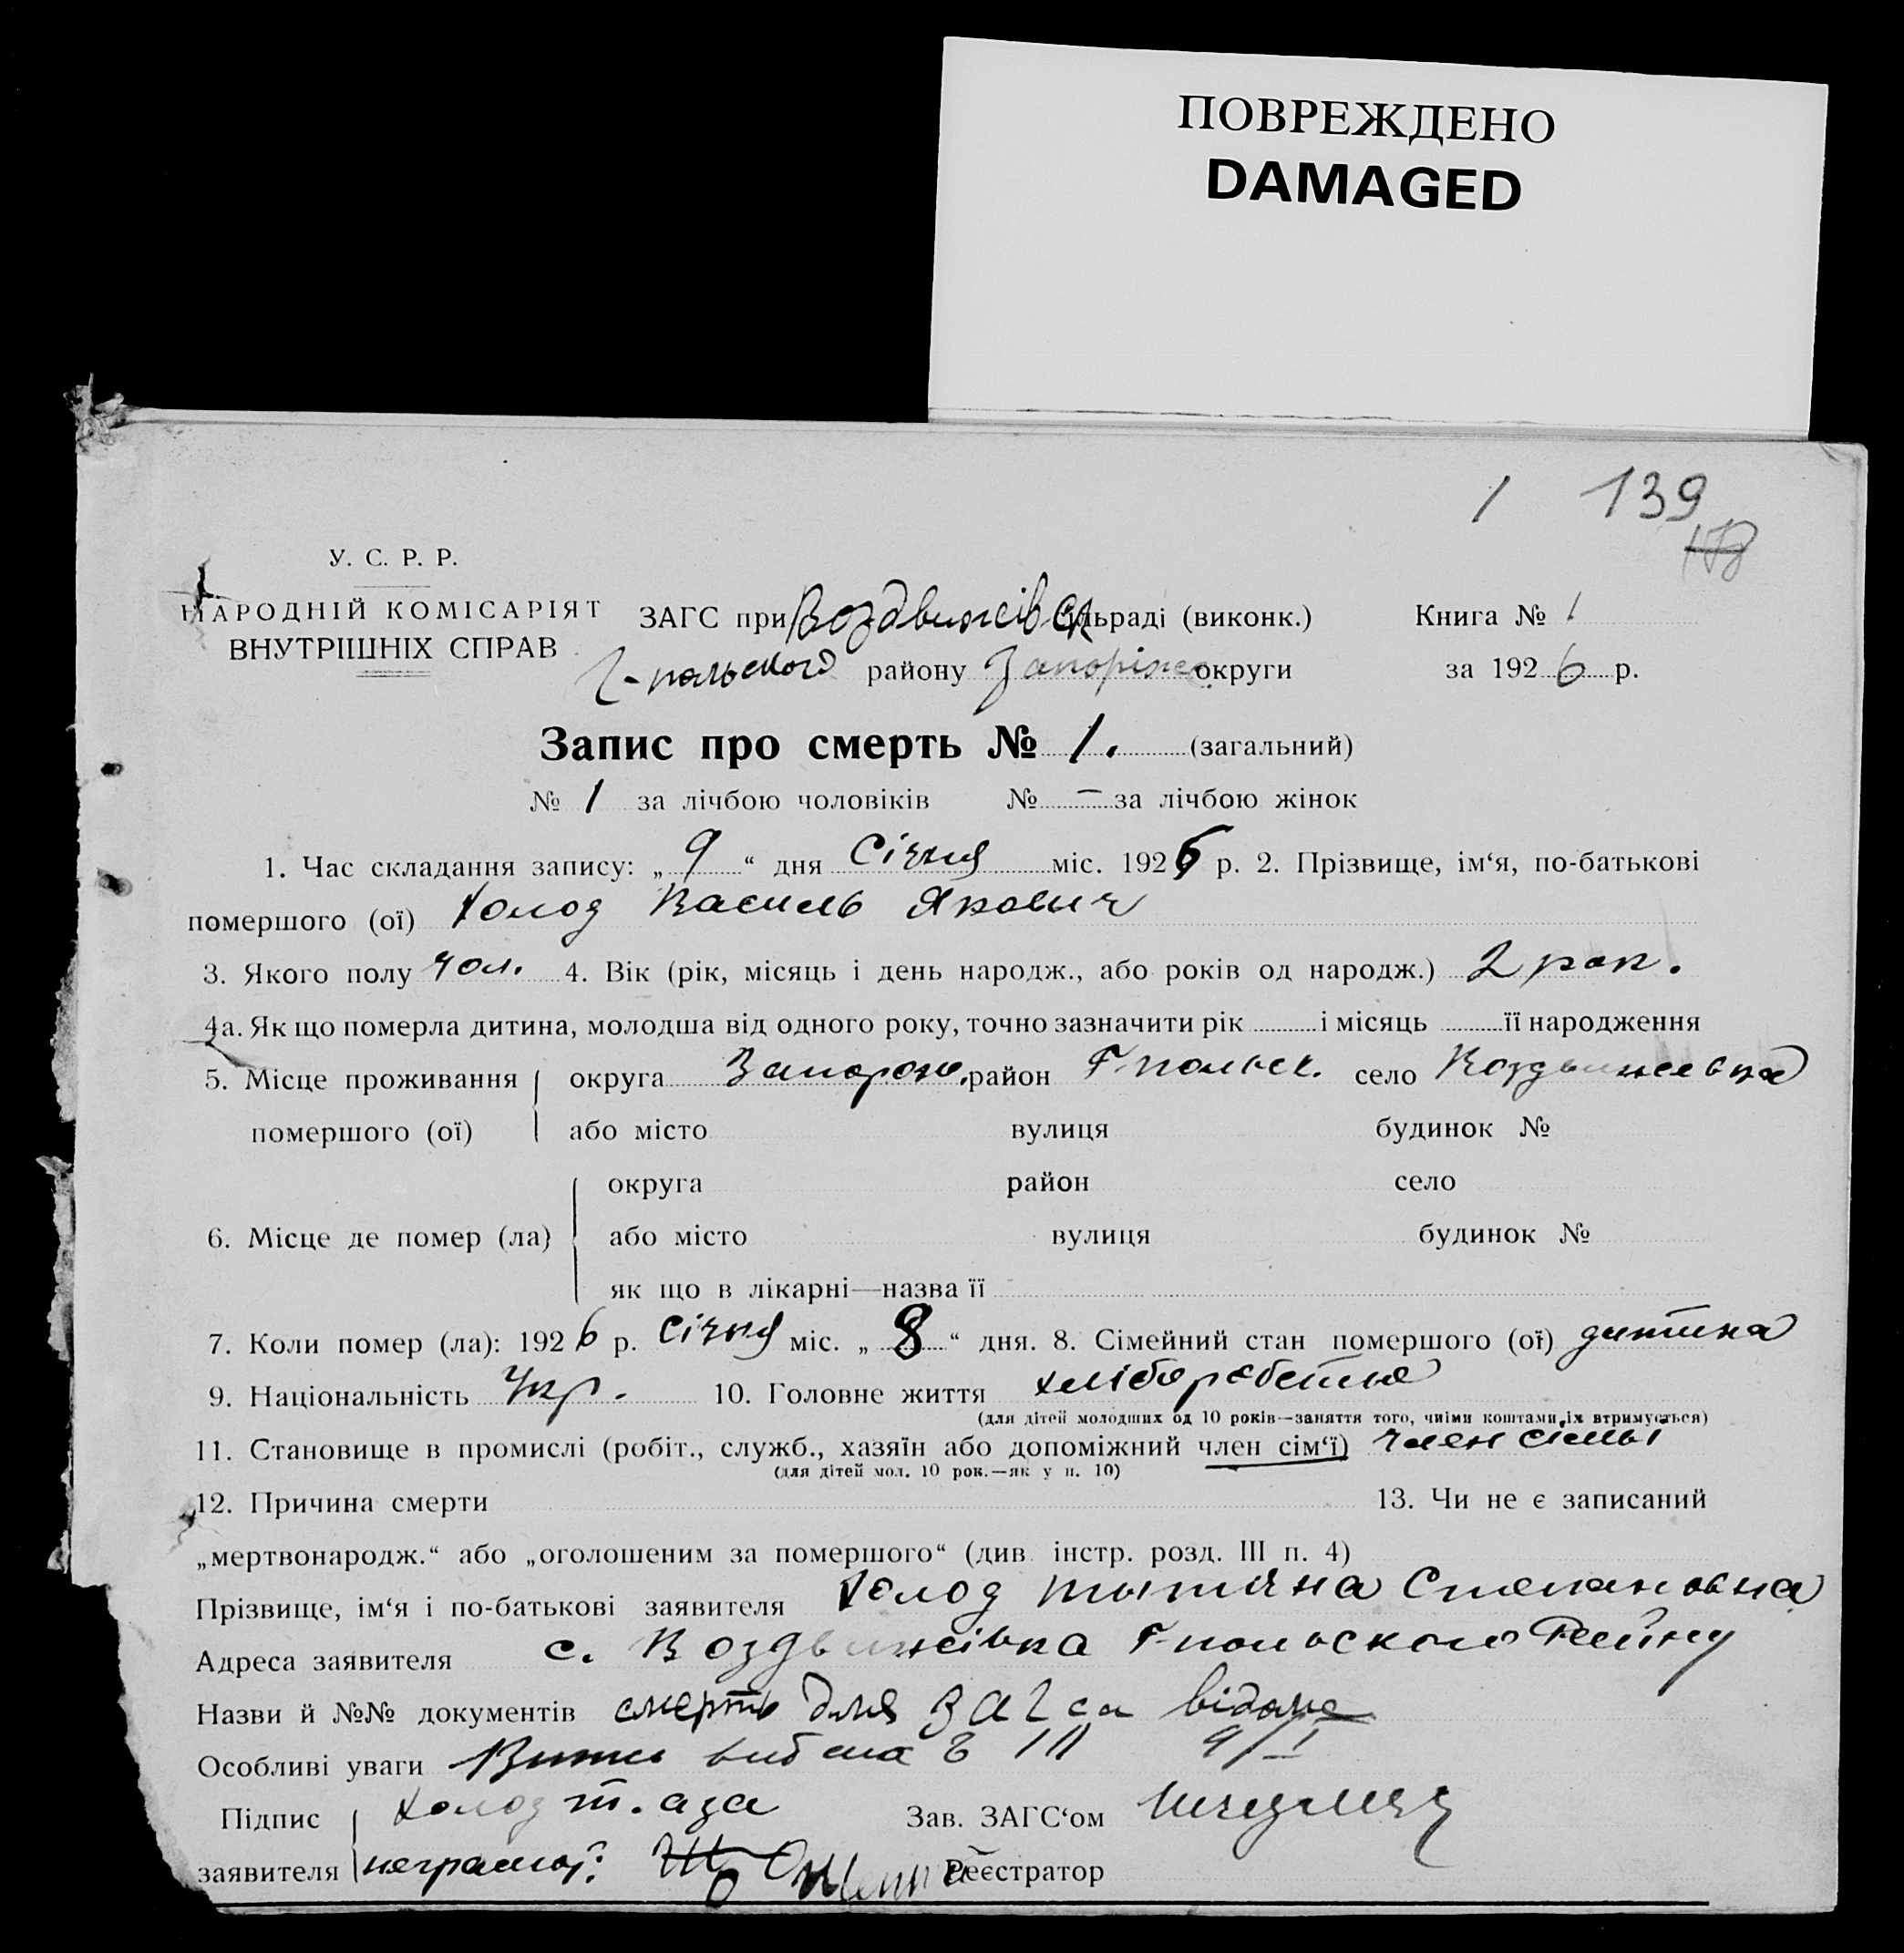 ПОВРЕЖДЕНО
DAMAGED
1 139
У. С. Р. Р.
НАРОДНІЙ КОМІСАРІЯТ
ВНУТРІШНІХ СПРАВ
ЗАГС при Воздвижівск сільраді (виконк.) Книга № 1
Г-польского району Запоріж округи за 1926 р.
Запис про смерть № 1. (загальний)
№ 1 за лічбою чоловіків № — за лічбою жінок
1. Час складання запису: „ 9 “ дня Січня міс. 1926 р. 2. Прізвище, ім‘я, по-батькові
помершого (ої) Холод Василь Якович
3. Якого полу чол. 4. Вік (рік, місяць і день народж., або років од народж.) 2 рок.
4а. Як що померла дитина, молодша від одного року, точно зазначити рік і місяць її народження
5. Місце проживання округа Запорож. район Г-польск. село Воздвижевка
помершого (ої) або місто вулиця будинок №
округа район село
6. Місце де помер (ла) або місто вулиця будинок №
як що в лікарні—назва її
7. Коли помер (ла): 1926 р. Січня міс. „ 8 “ дня. 8. Сімейний стан помершого (ої) дитина
9. Національність Укр. 10. Головне життя хліборобство
(для дітей молодших од 10 років—заняття того, чиїми коштами їх втримується)
11. Становище в промислі (робіт., служб., хазяїн або допоміжний член сім‘ї) член сімьі
(для дітей мол. 10 рок.—як у п. 10)
12. Причина смерти 13. Чи не є записаний
„мертвонародж.“ або „оголошеним за помершого“ (див. інстр. розд. III п. 4)
Прізвище, ім‘я і по-батькові заявителя Холод Тытяна Степановна
Адреса заявителя с. Воздвижівка Г-польского Району
Назви й №№ документів смерть для ЗАГса відома
Особливі уваги 9/I
Підпис Холод т. аза Зав. ЗАГС‘ом
заявителя неграмот: Реєстратор